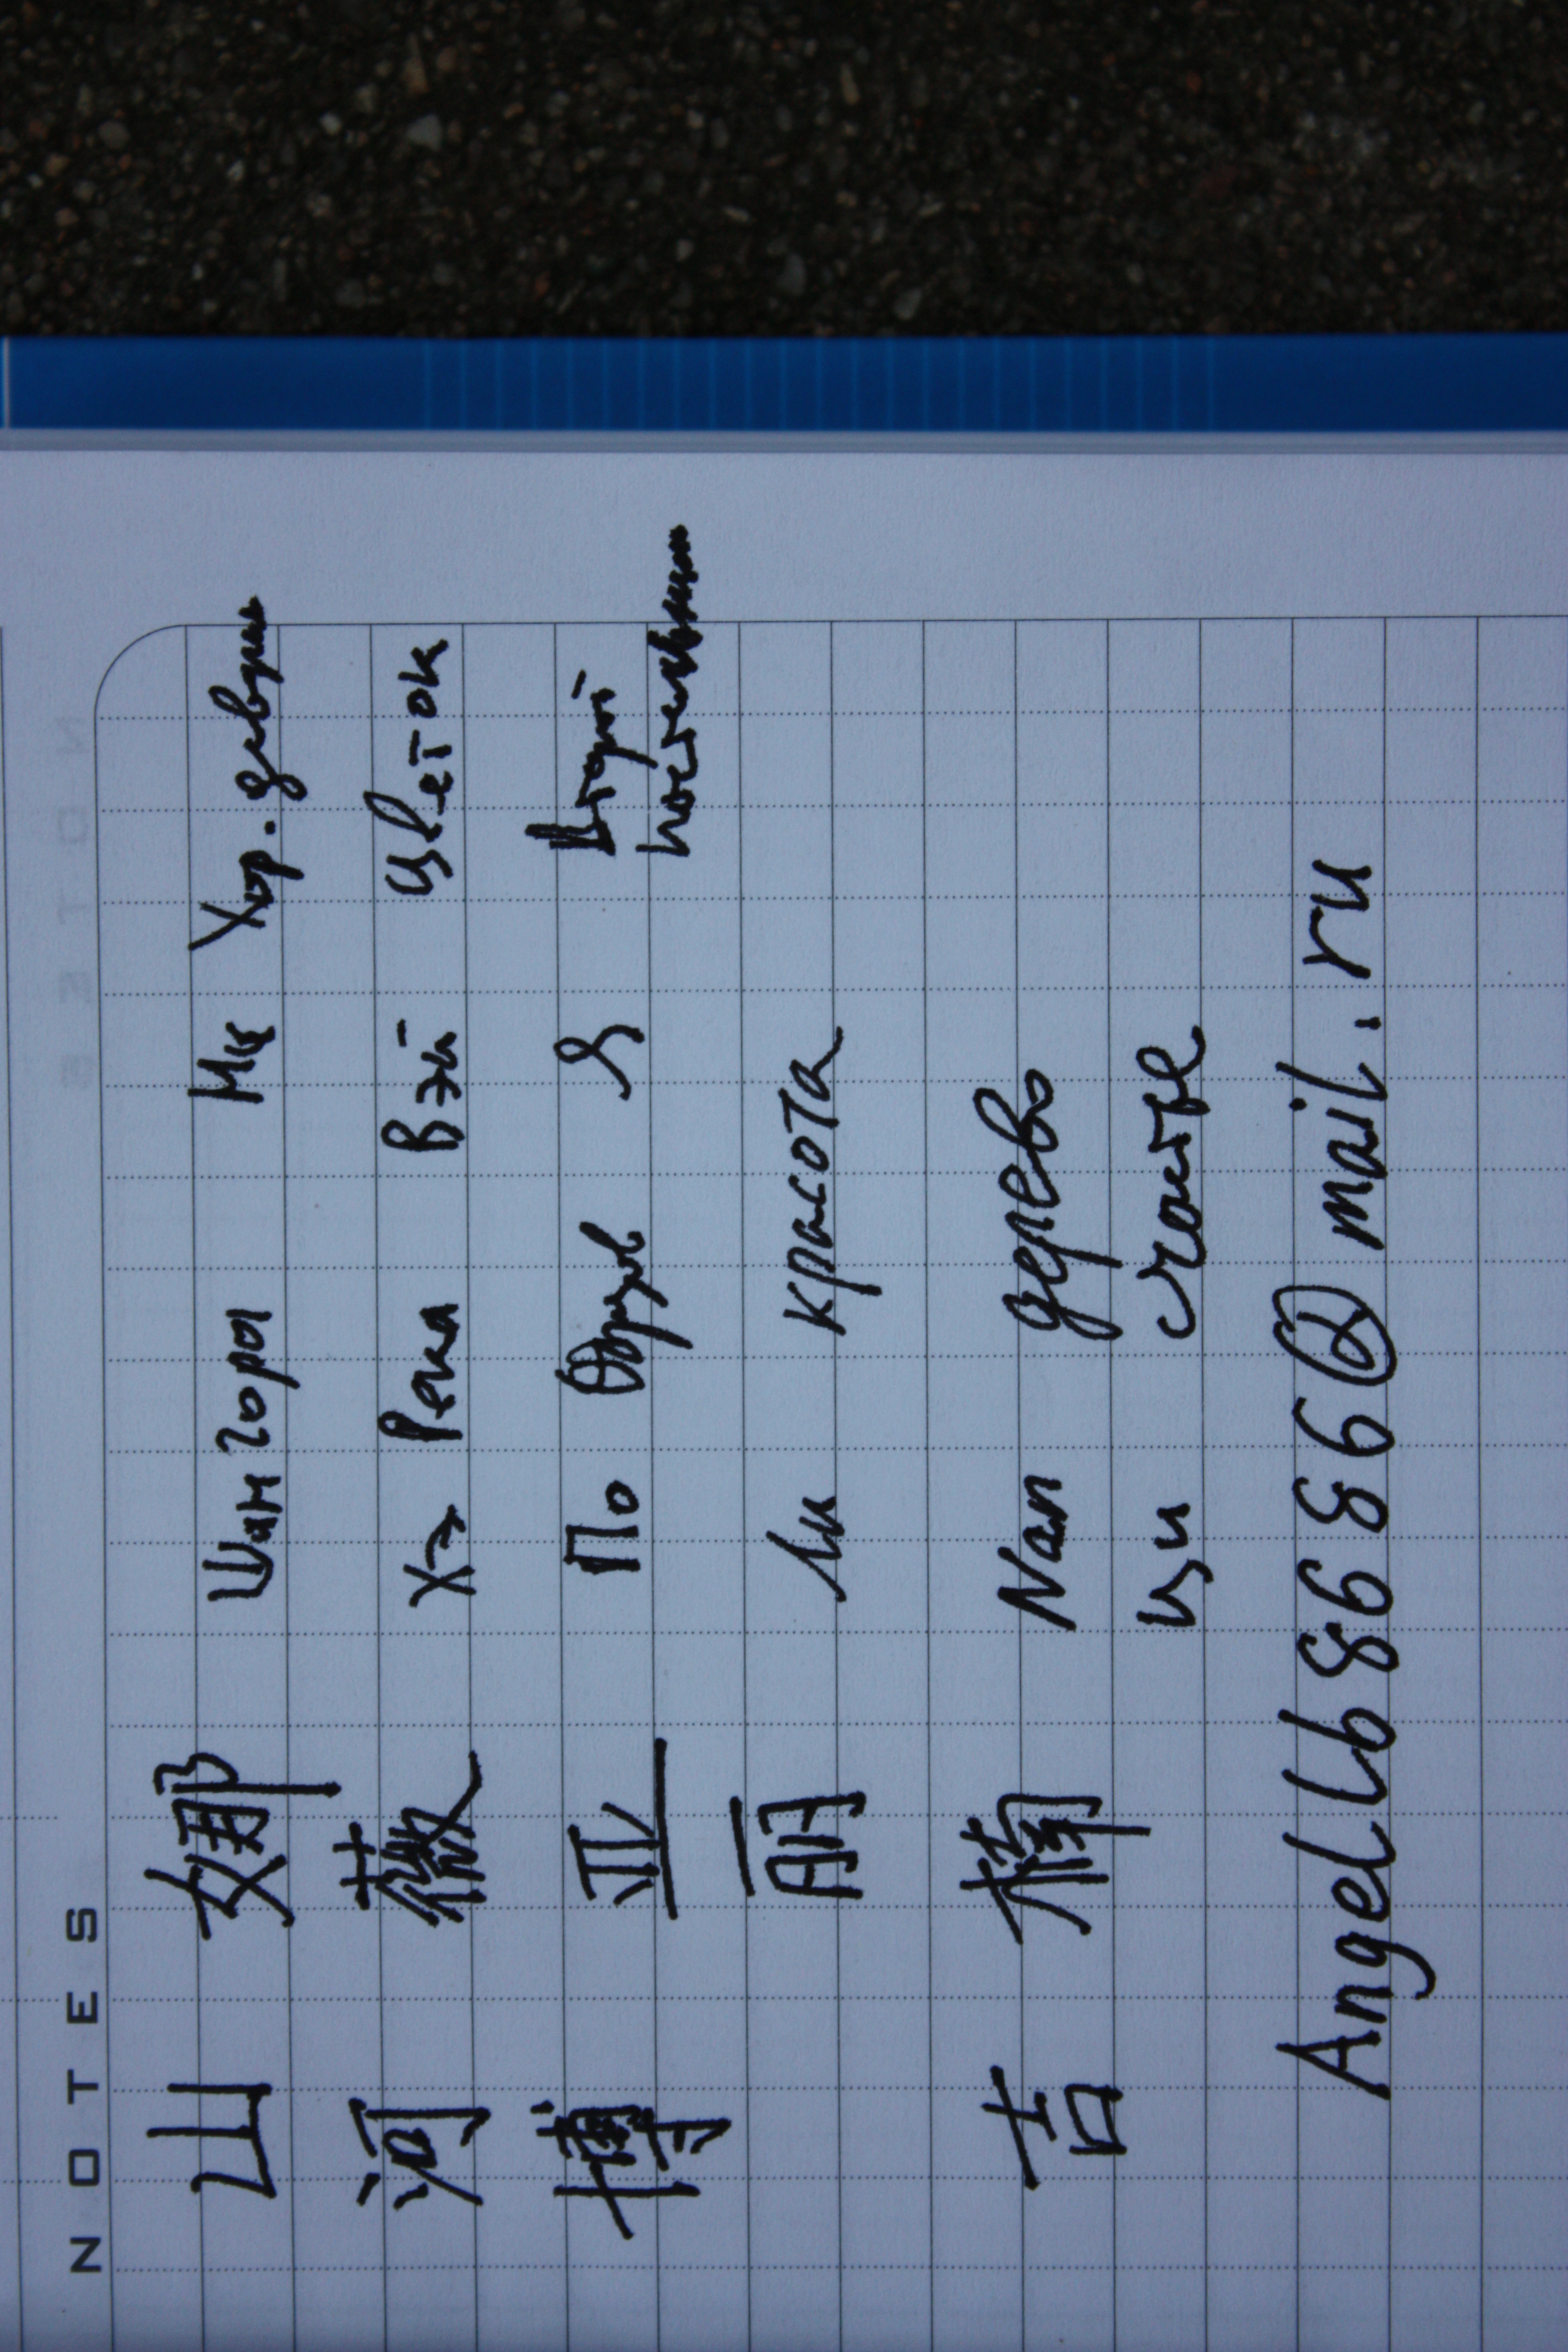 NOTES
山 娜 Шан горы На Хор. девушка
河 薇 Хэ Река Вэй Цветок
博 亚 По Я Второй
丽 Ли красота
楠 Nan дерево
吉 Ци счастье
Angellb8686@mail.ru